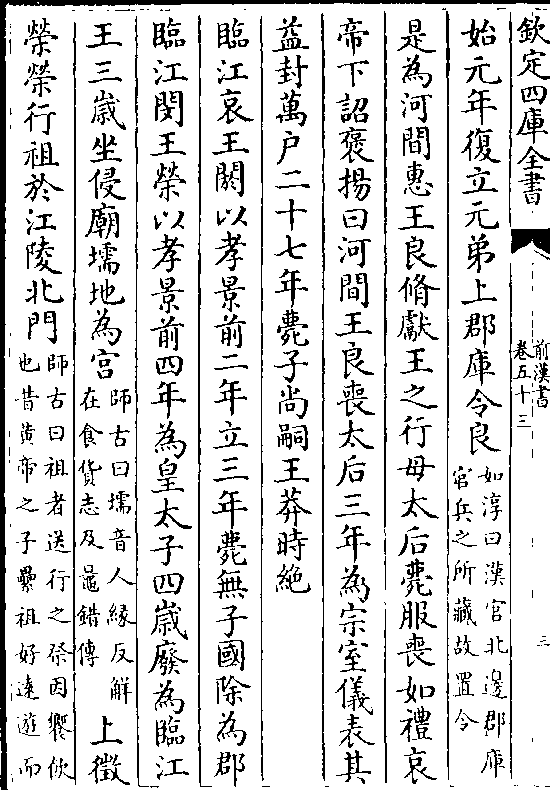 欽定四庫全書
前漢書
卷五十三
三
始元年復立元弟上郡庫令良如淳曰漢官北邊郡庫
官兵之所藏故置令
是為河間惠王良脩獻王之行母太后薨服喪如禮哀
帝下詔褒揚曰河間王良喪太后三年為宗室儀表其
益封萬户二十七年薨子尚嗣王莽時絶
臨江哀王閼以孝景前二年立三年薨無子國除為郡
臨江閔王榮以孝景前四年為皇太子四歳廢為臨江
王三歳坐侵廟壖地為宫師古曰壖音人緣反解
在食貨志及鼂錯傳上徵
榮榮行祖於江陵北門師古曰祖者送行之祭因饗飲
也昔黄帝之子纍祖好逺遊而